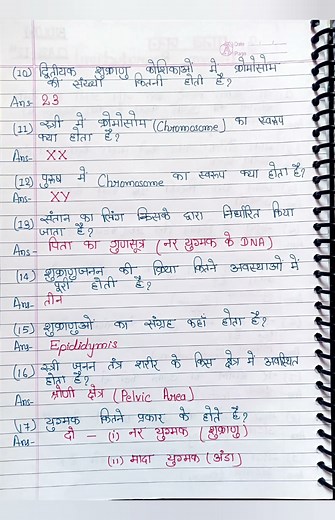 (10) द्वितीयक शुक्राणु कोशिकाओं में क्रोमोसोम
की संख्या कितनी होती है?
Ans- 23
(11) स्त्री में क्रोमोसोम (Chromosome) का स्वरूप
क्या होता है?
Ans- XX
(12) पुरुष में Chromosome का स्वरूप क्या होता है?
Ans- XY
(13) संतान का लिंग किसके द्वारा निर्धारित किया
जाता है?
Ans- पिता का गुणसूत्र (नर युग्मक के DNA)
(14) शुक्राणुजनन की क्रिया कितने अवस्थाओं में
पूरी होती है?
Ans- तीन
(15) शुक्राणुओं का संग्रह कहाँ होता है?
Ans- Epididymis
(16) स्त्री जनन तंत्र शरीर के किस क्षेत्र में अवस्थित
होता है?
Ans- श्रोणी क्षेत्र (Pelvic Area)
(17) युग्मक कितने प्रकार के होते है?
Ans- दो – (i) नर युग्मक (शुक्राणु)
(ii) मादा युग्मक (अंडा)